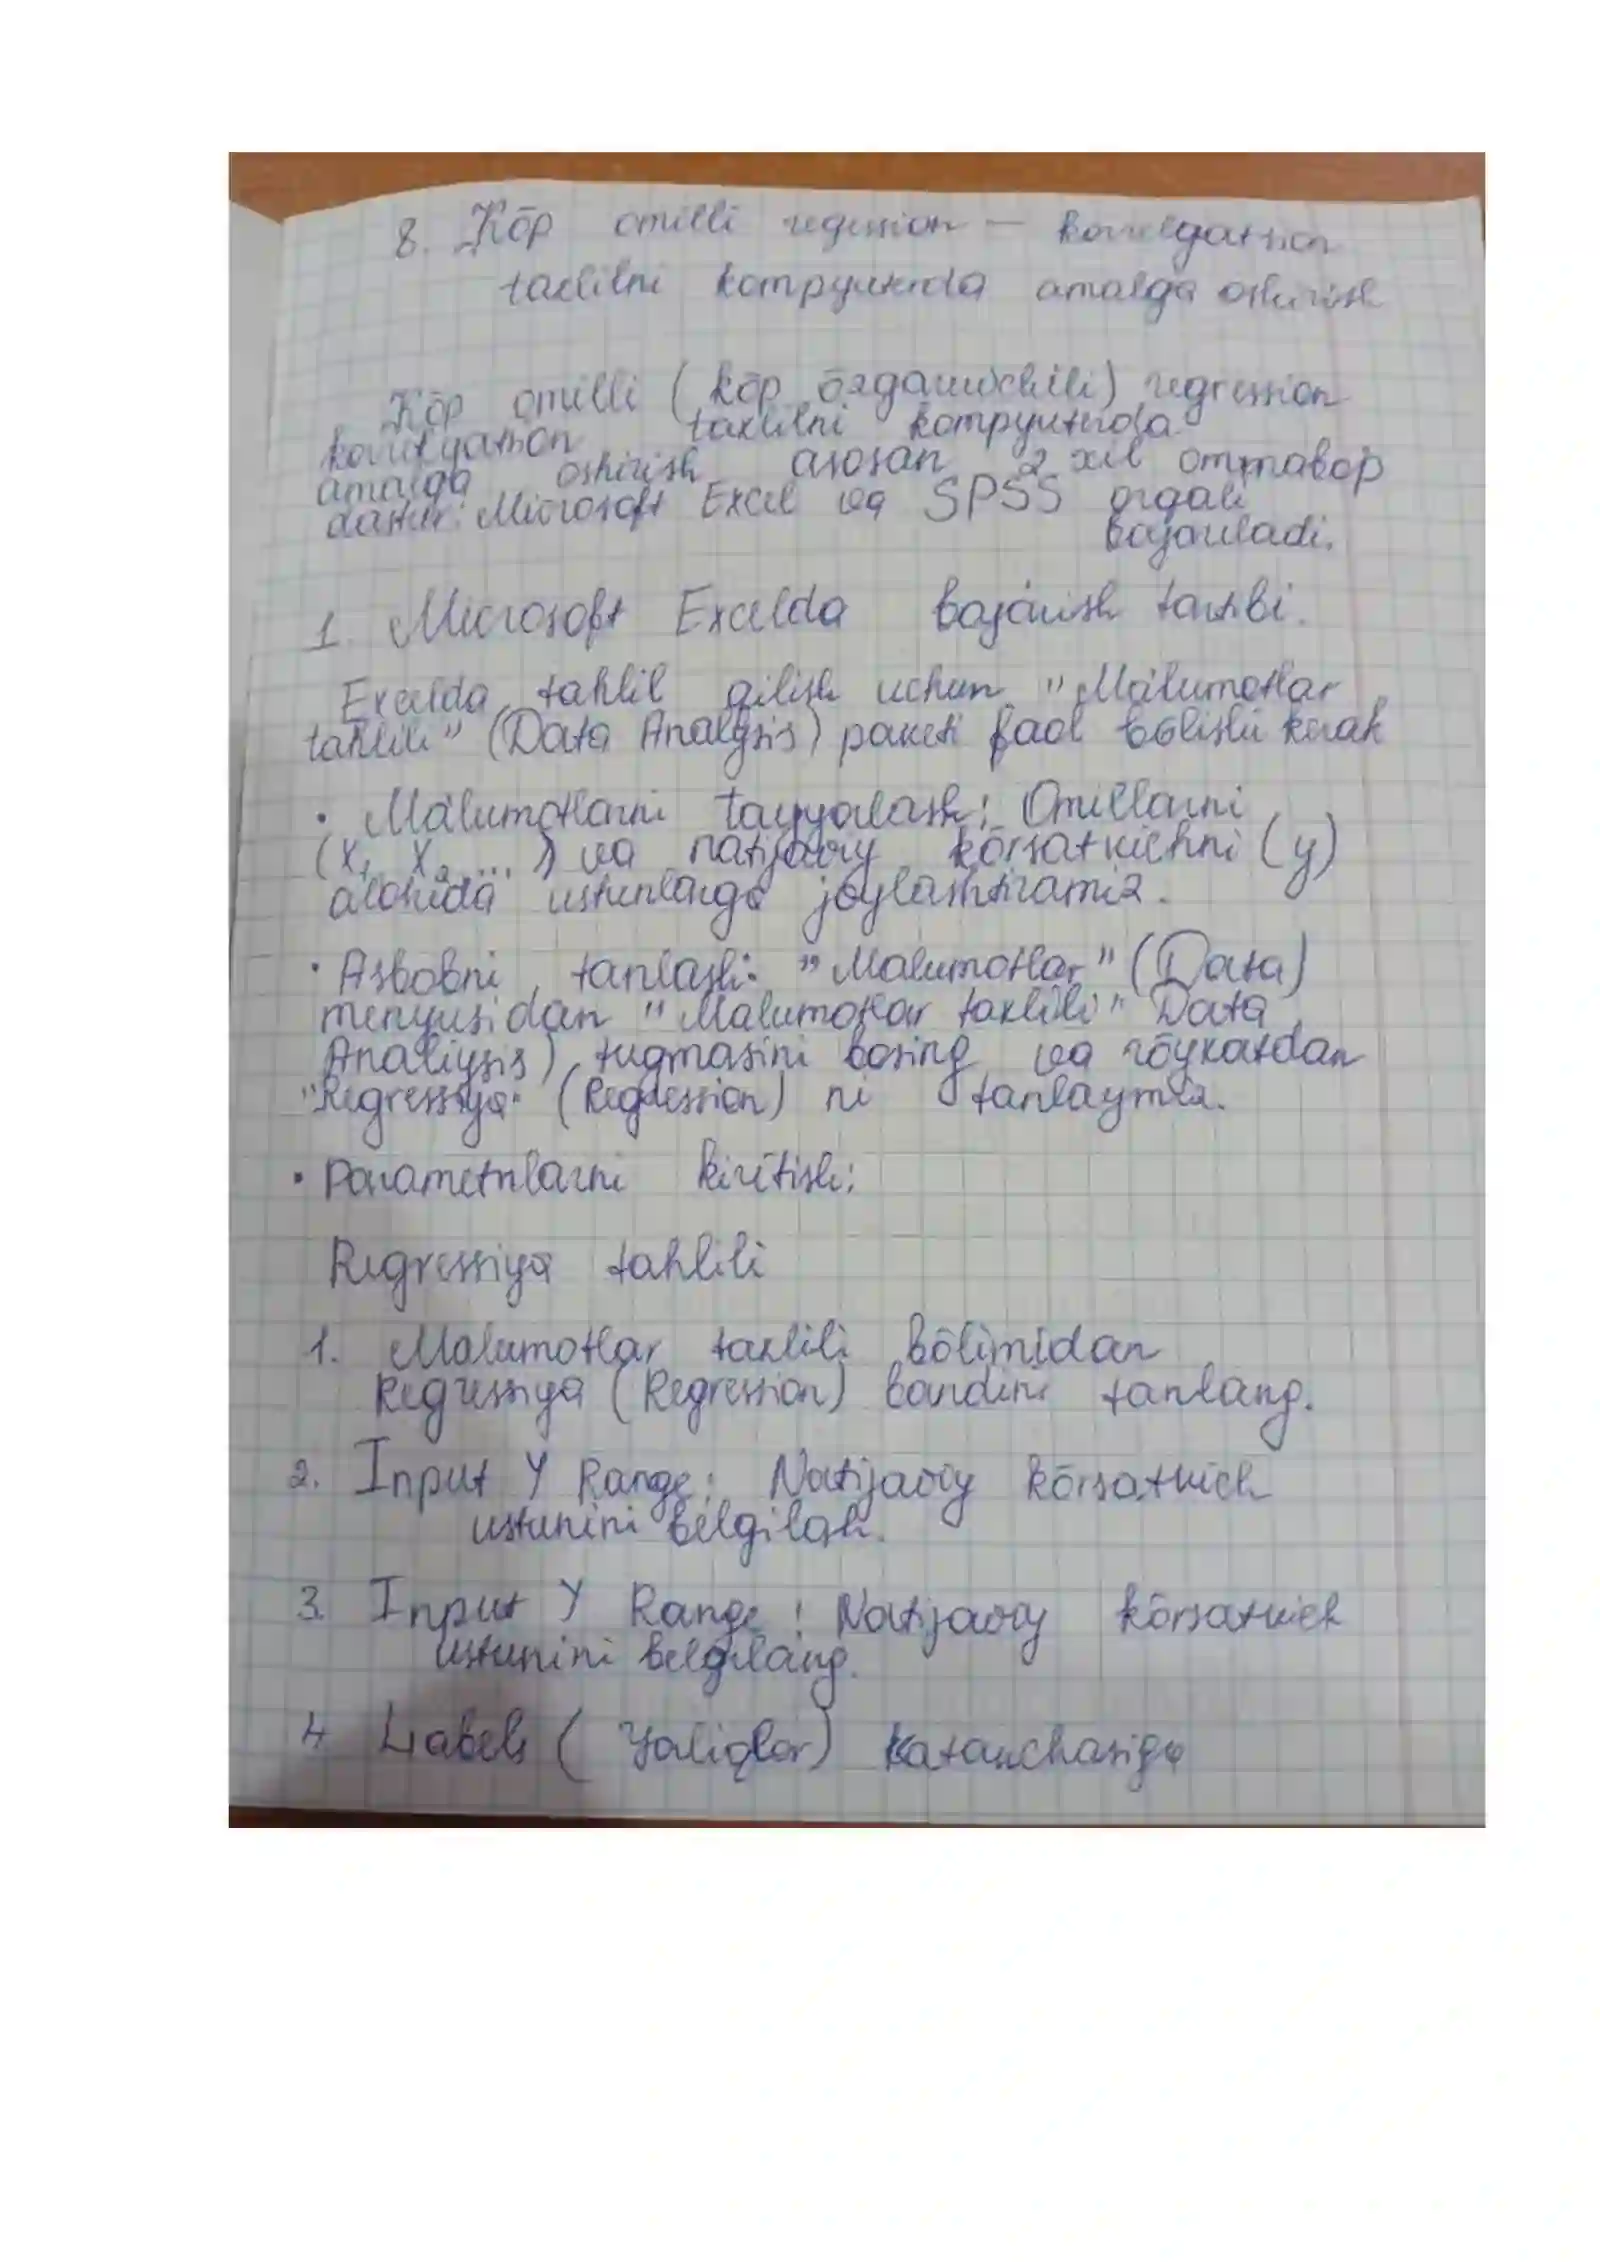 8. Kōp omilli regression – korrelyatsion
taxlilni kompyuterda amalga oshirish
Kōp omilli (kōp ōzgaruvchili) regression
korrelyatsion taxlilni kompyuterda
amalga oshirish asosan 2 xil ommabop
dastur: Microsoft Excel va SPSS orqali
bajariladi.
1. Microsoft Excelda bajarish tartibi.
Excelda tahlil qilish uchun "Ma'lumotlar
tahlili" (Data Analysis) paketi faol bōlishi kerak
• Ma'lumotlarni tayyorlash: Omillarni
(x₁, x₂, ...) va natijaviy kōrsatkichni (y)
alohida ustunlarga joylashtiramiz.
• Asbobni tanlash: "Malumotlar" (Data)
menyusidan "Malumotlar taxlili" Data
Analiysis) tugmasini bosing va rōyxatdan
"Regressiya" (Regression) ni tanlaymiz.
• Parametrlarni kiritish:
Regressiya tahlili
1. Malumotlar taxlili bōlimidan
Regressiya (Regression) bandini tanlang.
2. Input Y Range: Natijaviy kōrsatkich
ustunini belgilash.
3. Input Y Range: Natijaviy kōrsatkich
ustunini belgilang.
4 Labels ( Yorliqlar) katakchasiga